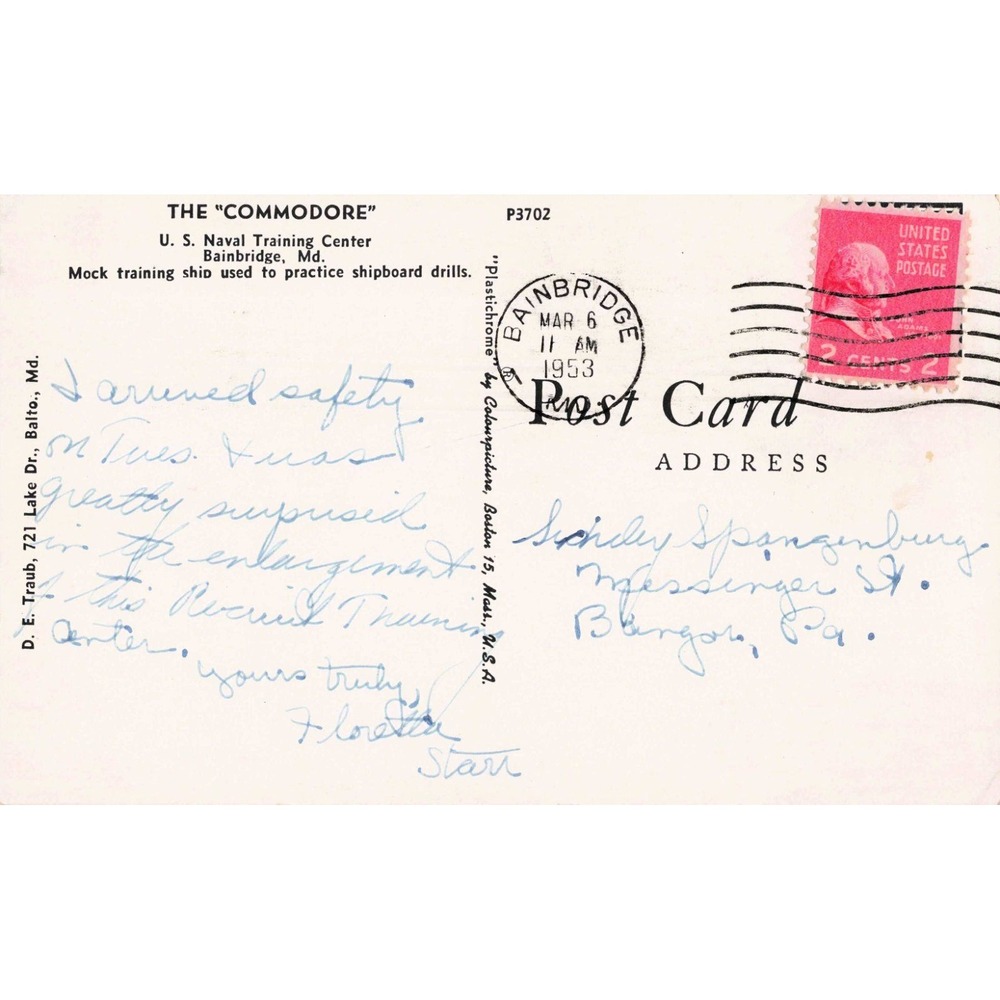 THE "COMMODORE"
U. S. Naval Training Center
Bainbridge, Md.
Mock training ship used to practice shipboard drills.
P3702
D. E. Traub, 721 Lake Dr., Balto., Md.
"Plastichrome" ® by Colourpicture, Boston 15, Mass., U.S.A.
BAINBRIDGE
MAR 6
11 AM
1953
MD.
UNITED
STATES
POSTAGE
ADAMS
2 CENTS 2
Post Card
ADDRESS
I arrived safety
on Tues. & was
greatly surprised
in the enlargement
of this Recruit Training
Center.
yours truly,
Floretta
Starr
Shirley Spangenburg
Messinger St.
Bangor, Pa.